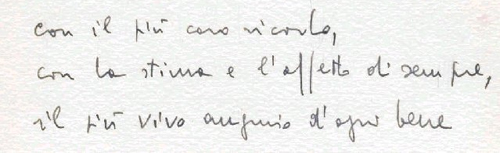 con il più caro ricordo,
con la stima e l'affetto di sempre,
il più vivo augurio d'ogni bene